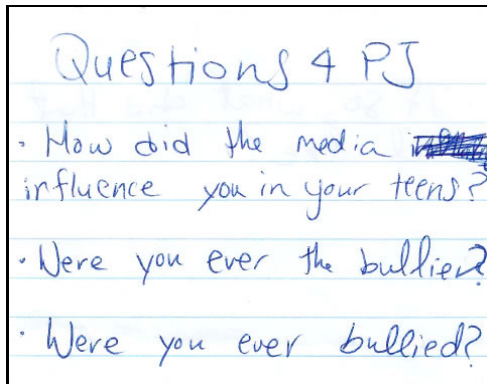 Questions 4 PJ
· How did the media
influence you in your teens?
· Were you ever the bullier?
· Were you ever bullied?